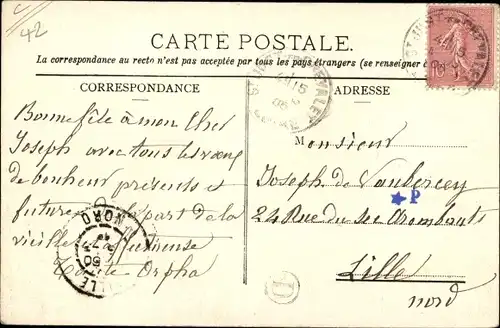 42
CARTE POSTALE.
La correspondance au recto n'est pas acceptée par tous les pays étrangers (se renseigner à
CORRESPONDANCE
ADRESSE
Bonne fête à mon cher
Joseph avec tous les vœux
de bonheur présents et
future de part de la
vieille
Tante Orpha
Monsieur
Joseph de
P
24 Rue du
Lille
nord
LILLE
NORD
D
10